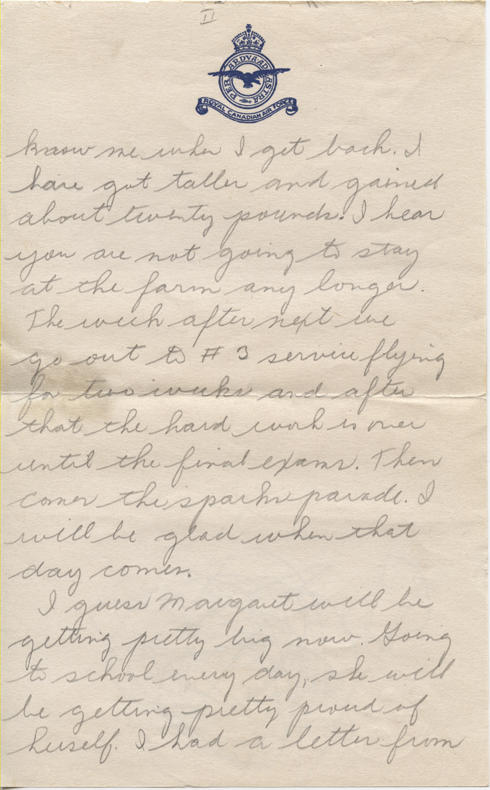 II
PER ARDUA AD ASTRA
ROYAL CANADIAN AIR FORCE
know me when I get back. I
have got taller and gained
about twenty pounds. I hear
you are not going to stay
at the farm any longer.
The week after next we
go out to # 3 service flying
for two weeks and after
that the hard work is over
until the final exams. Then
comes the sparks parade. I
will be glad when that
day comes.
I guess Margaret will be
getting pretty big now. Going
to school every day, she will
be getting pretty proud of
herself. I had a letter from